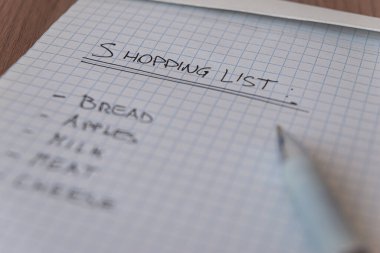 SHOPPING LIST:
- BREAD
- APPLES
- MILK
- MEAT
- CHEESE